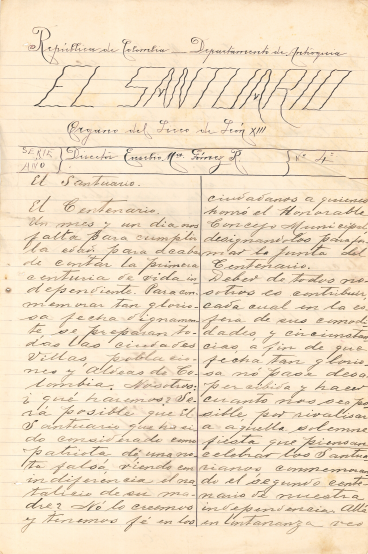 República de Colombia — Departamento de Antioquia
EL SANTUARIO
Organo del Liceo de León XIII
SERIE
AÑO
Director Eusebio Ma. Gómez R.
No 4º
El Santuario.
El Centenario.
Un mes y un dia nos
falta para cumplir
la edad para acabar
de contar la primera
centuria de vida in
dependiente. Para con
memorar tan glorio
sa fecha dignamen
te se preparan to
das las ciudades
villas, poblacio
nes y Aldeas de Co
lombia. Nosotros
i qué haremos? Se
rá posible que El
Santuario que ha si
do considerado como
patriota dé una no
ta falsa, viendo con
indiferencia el na
talicio de su ma
dre? No lo creemos
y tenemos fé en los
ciudadanos a quienes
honró el Honorable
Concejo Municipal,
designándolos para for
mar la junta del
Centenario.
Deber de todos no
sotros es contribuir,
cada cual en la es
fera de sus comodi
dades, y circunstan
cias, á fin de que
fecha tan glorio
sa no pase desa
percibida y hacer
cuanto nos sea po
sible por rivalizar
a aquella solemne
fiesta que piensan
celebrar los Santua
rianos conmemoran
do el segundo cente
nario de nuestra
independencia. Allá
en lontananza veo